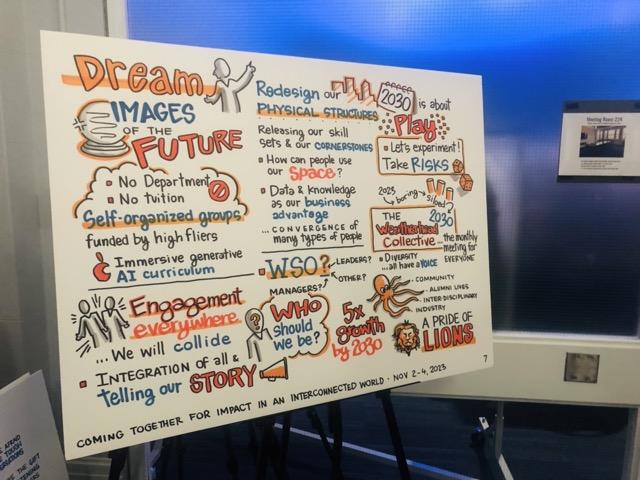 Dream
IMAGES
OF THE
FUTURE
No Department
No tuition
Self-organized groups
funded by high fliers
Immersive generative
AI curriculum
Engagement
everywhere
... We will collide
INTEGRATION of all &
telling our STORY
Redesign our
PHYSICAL STRUCTURES
Releasing our skill
sets & our CORNERSTONES
How can people use
our Space?
Data & knowledge
as our business
advantage
... CONVERGENCE of
many types of people
WSO?
LEADERS?
OTHER?
MANAGERS?
WHO
should
we be?
2030 is about
Play
Let's experiment!
Take RISKS
2023
boring
silos?
2030
THE
Weatherhead
Collective
... the monthly
meeting for
EVERYONE
DIVERSITY
... all have a VOICE
COMMUNITY
ALUMNI LIVES
INTER-DISCIPLINARY
INDUSTRY
5x
growth
by 2030
A PRIDE OF
LIONS
7
COMING TOGETHER FOR IMPACT IN AN INTERCONNECTED WORLD • NOV 2-4, 2023
Meeting Room 224